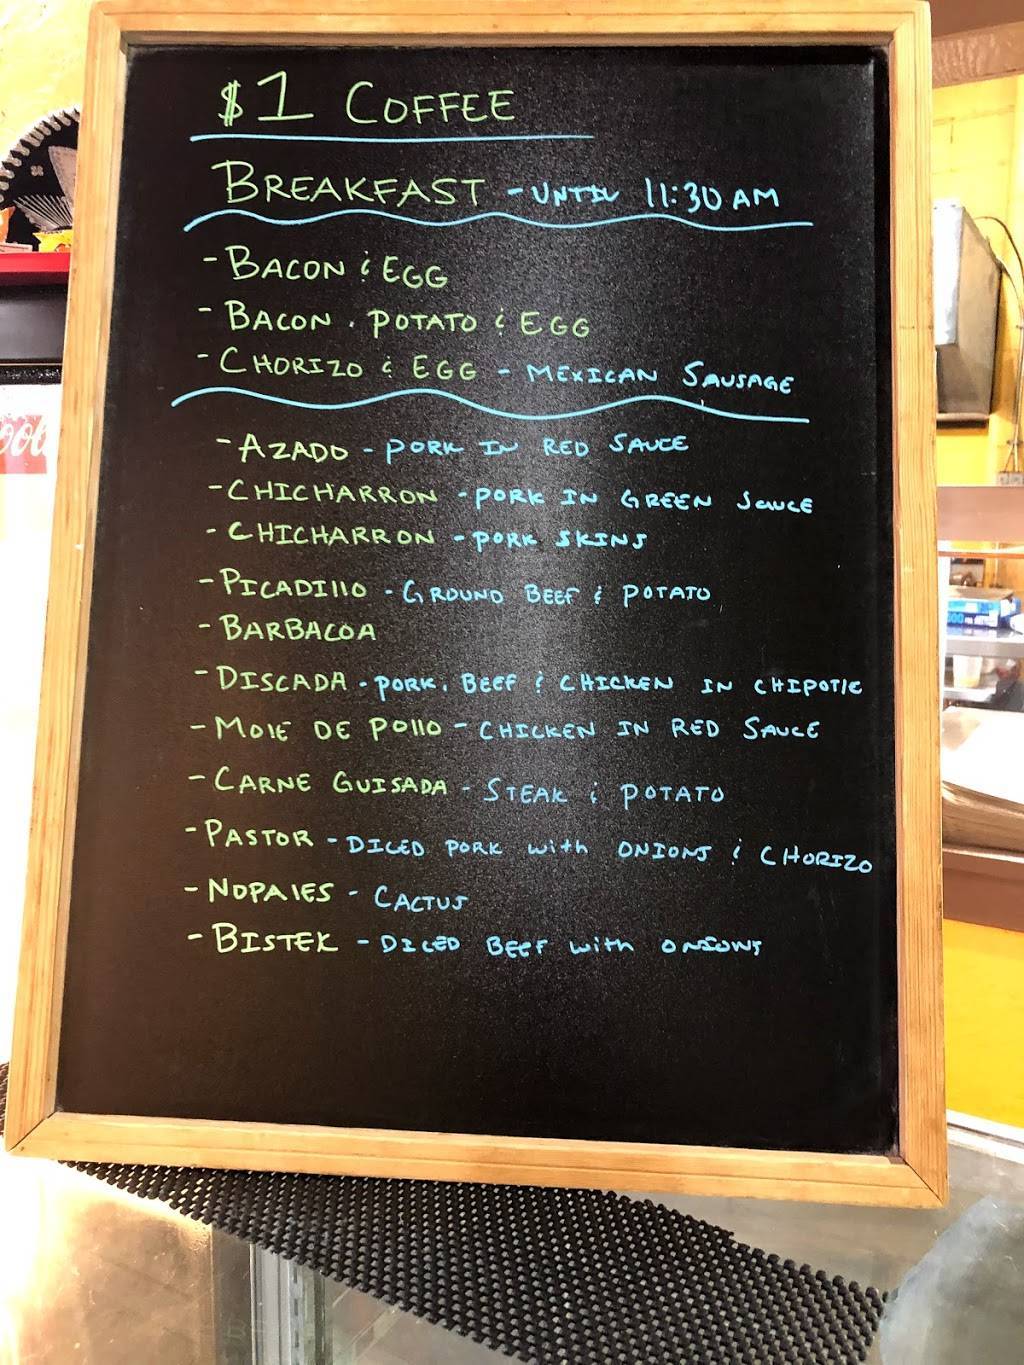 $1 COFFEE
BREAKFAST - UNTIL 11:30 AM
- BACON & EGG
- BACON, POTATO & EGG
- CHORIZO & EGG - MEXICAN SAUSAGE
- AZADO - PORK IN RED SAUCE
- CHICHARRON - PORK IN GREEN SAUCE
- CHICHARRON - PORK SKINS
- PICADIllO - GROUND BEEF & POTATO
- BARBACOA
- DISCADA - PORK, BEEF & CHICKEN IN CHIPOTlE
- MOlE DE POllO - CHICKEN IN RED SAUCE
- CARNE GUISADA - STEAK & POTATO
- PASTOR - DICED PORK with ONIONS & CHORIZO
- NOPAlES - CACTUS
- BISTEK - DICED BEEF with ONIONS